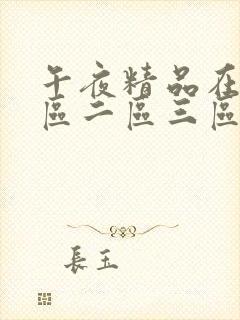 午夜精品在
區二區三區
長玉